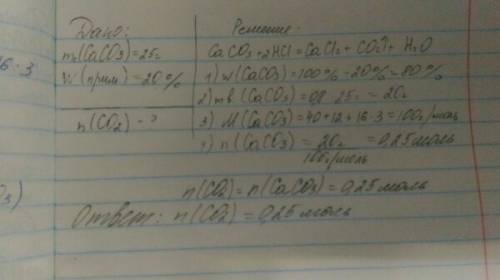 Дано:
m(CaCO3)=25г
W(прим)=20%
n(CO2) - ?
Решение
CaCO3+2HCl=CaCl2+CO2↑+H2O
1) w(CaCO3)=100%-20%=80%
2) mв(CaCO3)=0,8·25г=20г
3) M(CaCO3)=40+12+16·3=100г/моль
4) n(CaCO3)=20г/100г/моль=0,25моль
n(CO2)=n(CaCO3)=0,25моль
Ответ: n(CO2)=0,25моль
16·3
O3)